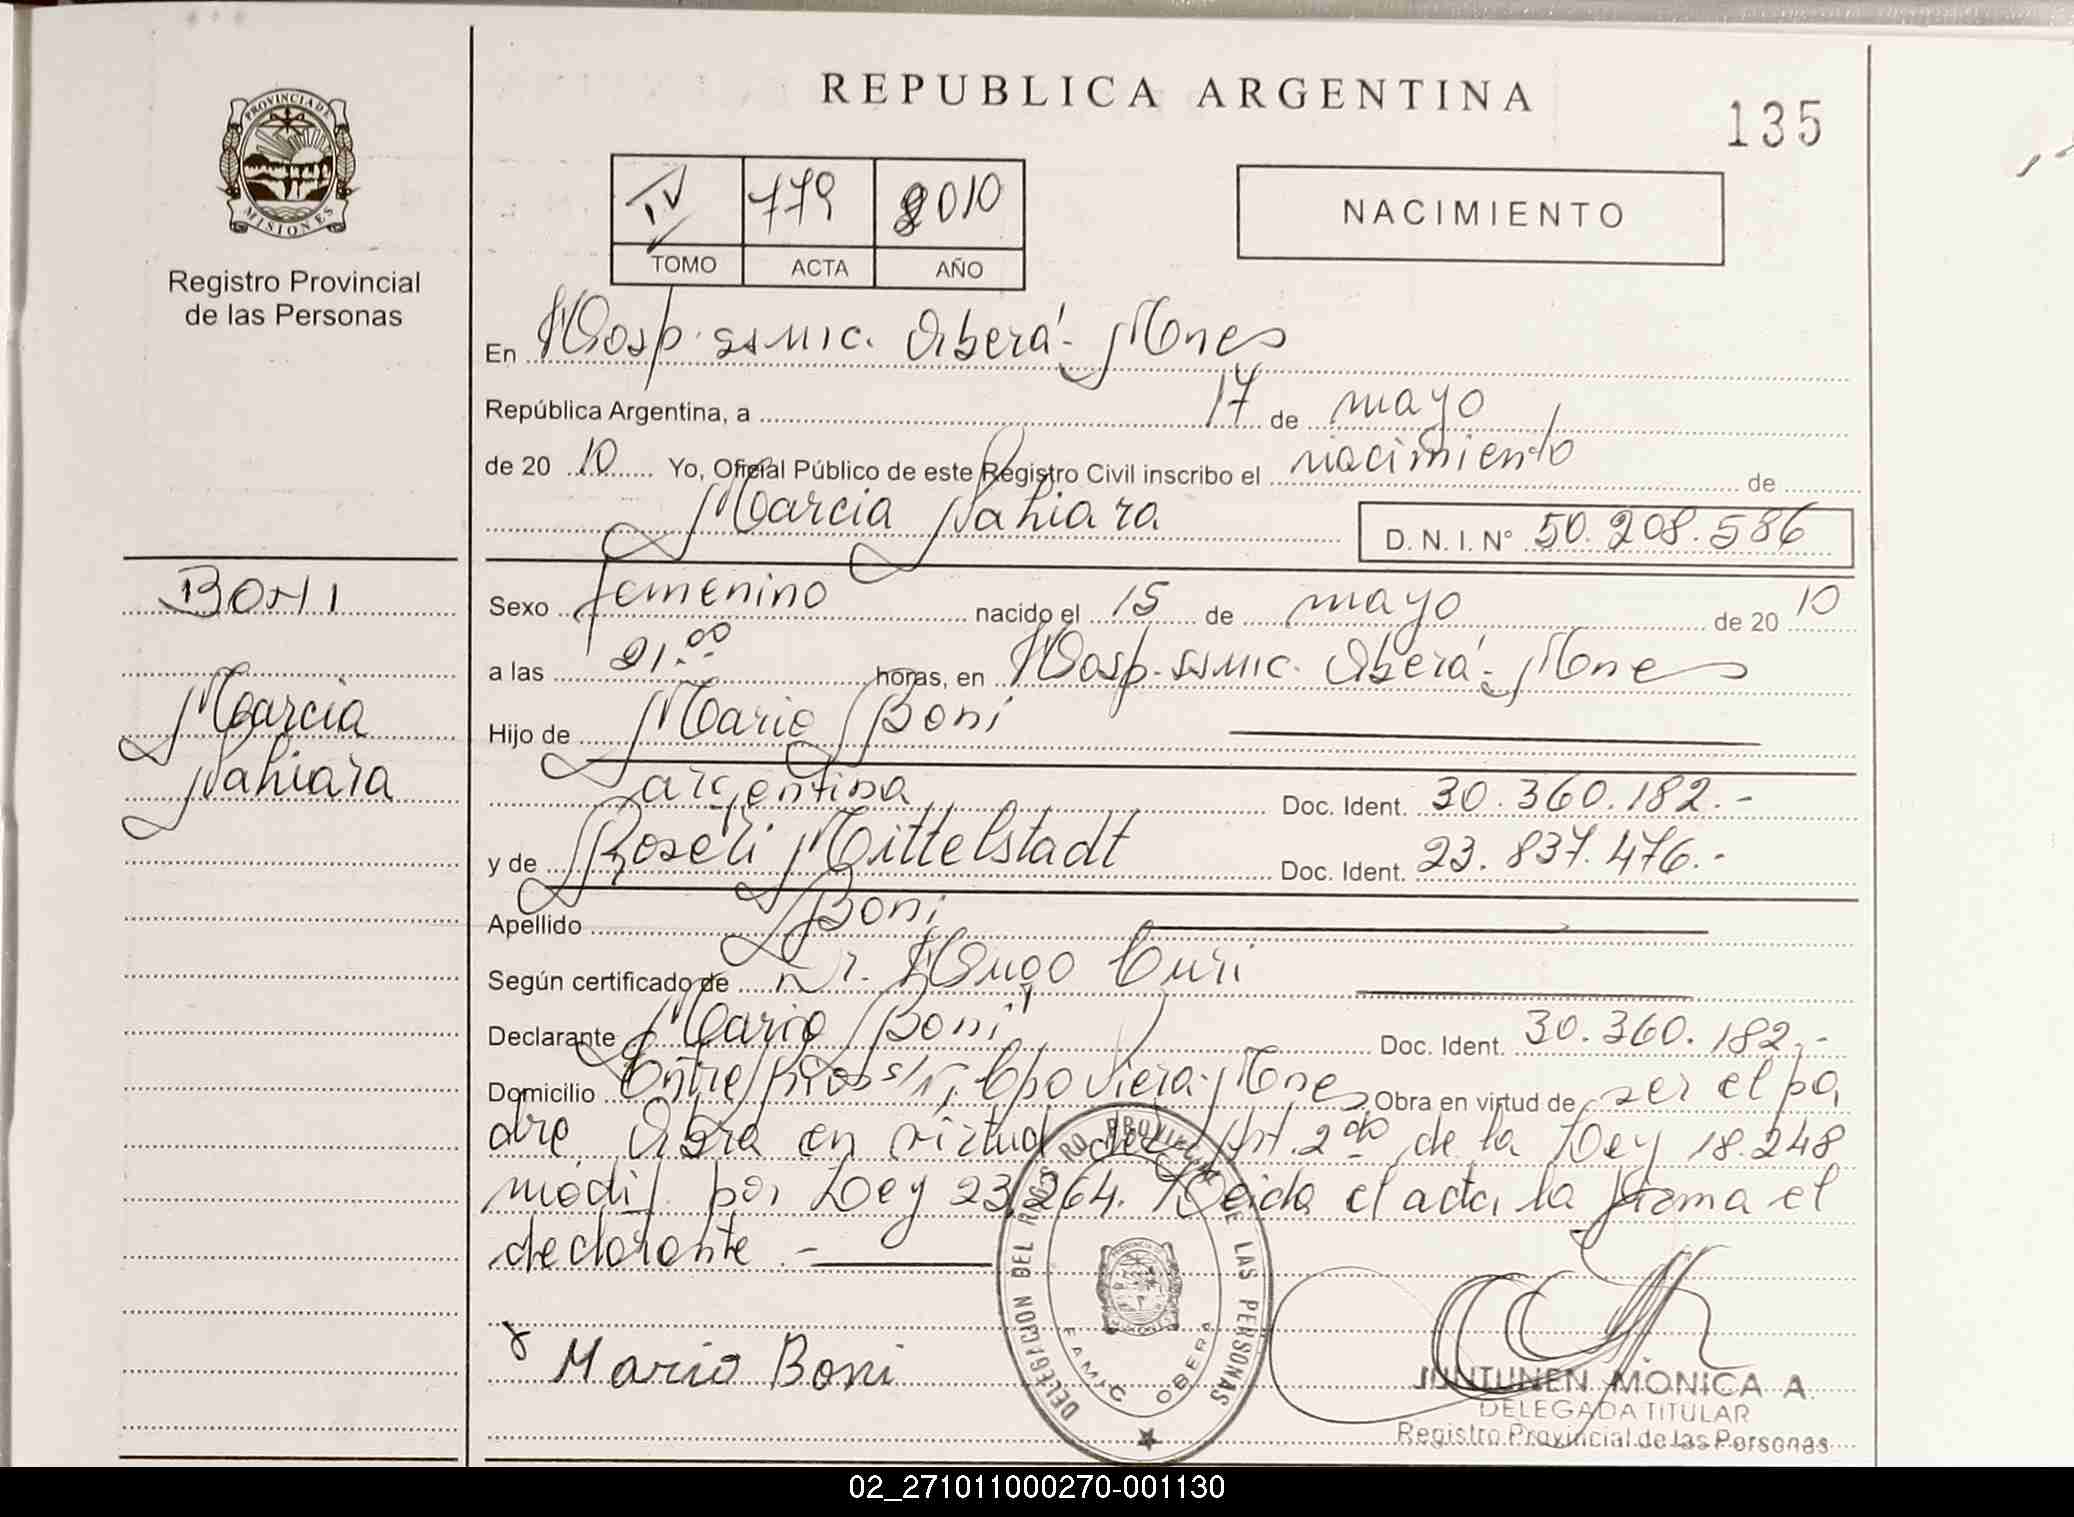 REPUBLICA ARGENTINA
135
PROVINCIA DE
MISIONES
Registro Provincial
de las Personas
IV 779 2010
TOMO ACTA AÑO
NACIMIENTO
En Hosp. SSMIC. Oberá - Mnes
República Argentina, a 17 de mayo
de 20 10 Yo, Oficial Público de este Registro Civil inscribo el nacimiento de
Marcia Nahiara D. N. I. N° 50.208.586
BONI
Marcia
Nahiara
Sexo femenino nacido el 15 de mayo de 20 10
a las 21.00 horas, en Hosp. SSMIC. Oberá - Mnes
Hijo de Mario Boni
argentina Doc. Ident. 30.360.182.-
y de Roseli Mittelstadt Doc. Ident. 23.837.476.-
Apellido Boni
Según certificado de Dr. Hugo Curi
Declarante Mario Boni Doc. Ident. 30.360.182.-
Domicilio Entre Ríos s/n, Cpo Viera - Mnes Obra en virtud de ser el pa
dre. Obra en virtud del Art. 2do de la Ley 18.248
modif. por Ley 23.264. Leida el acta, la firma el
declarante.-
Mario Boni
DELEGACION DEL REGISTRO PROVINCIAL DE LAS PERSONAS
SAMIC OBERA
JUNTUNEN MONICA A.
DELEGADA TITULAR
Registro Provincial de las Personas
02_271011000270-001130